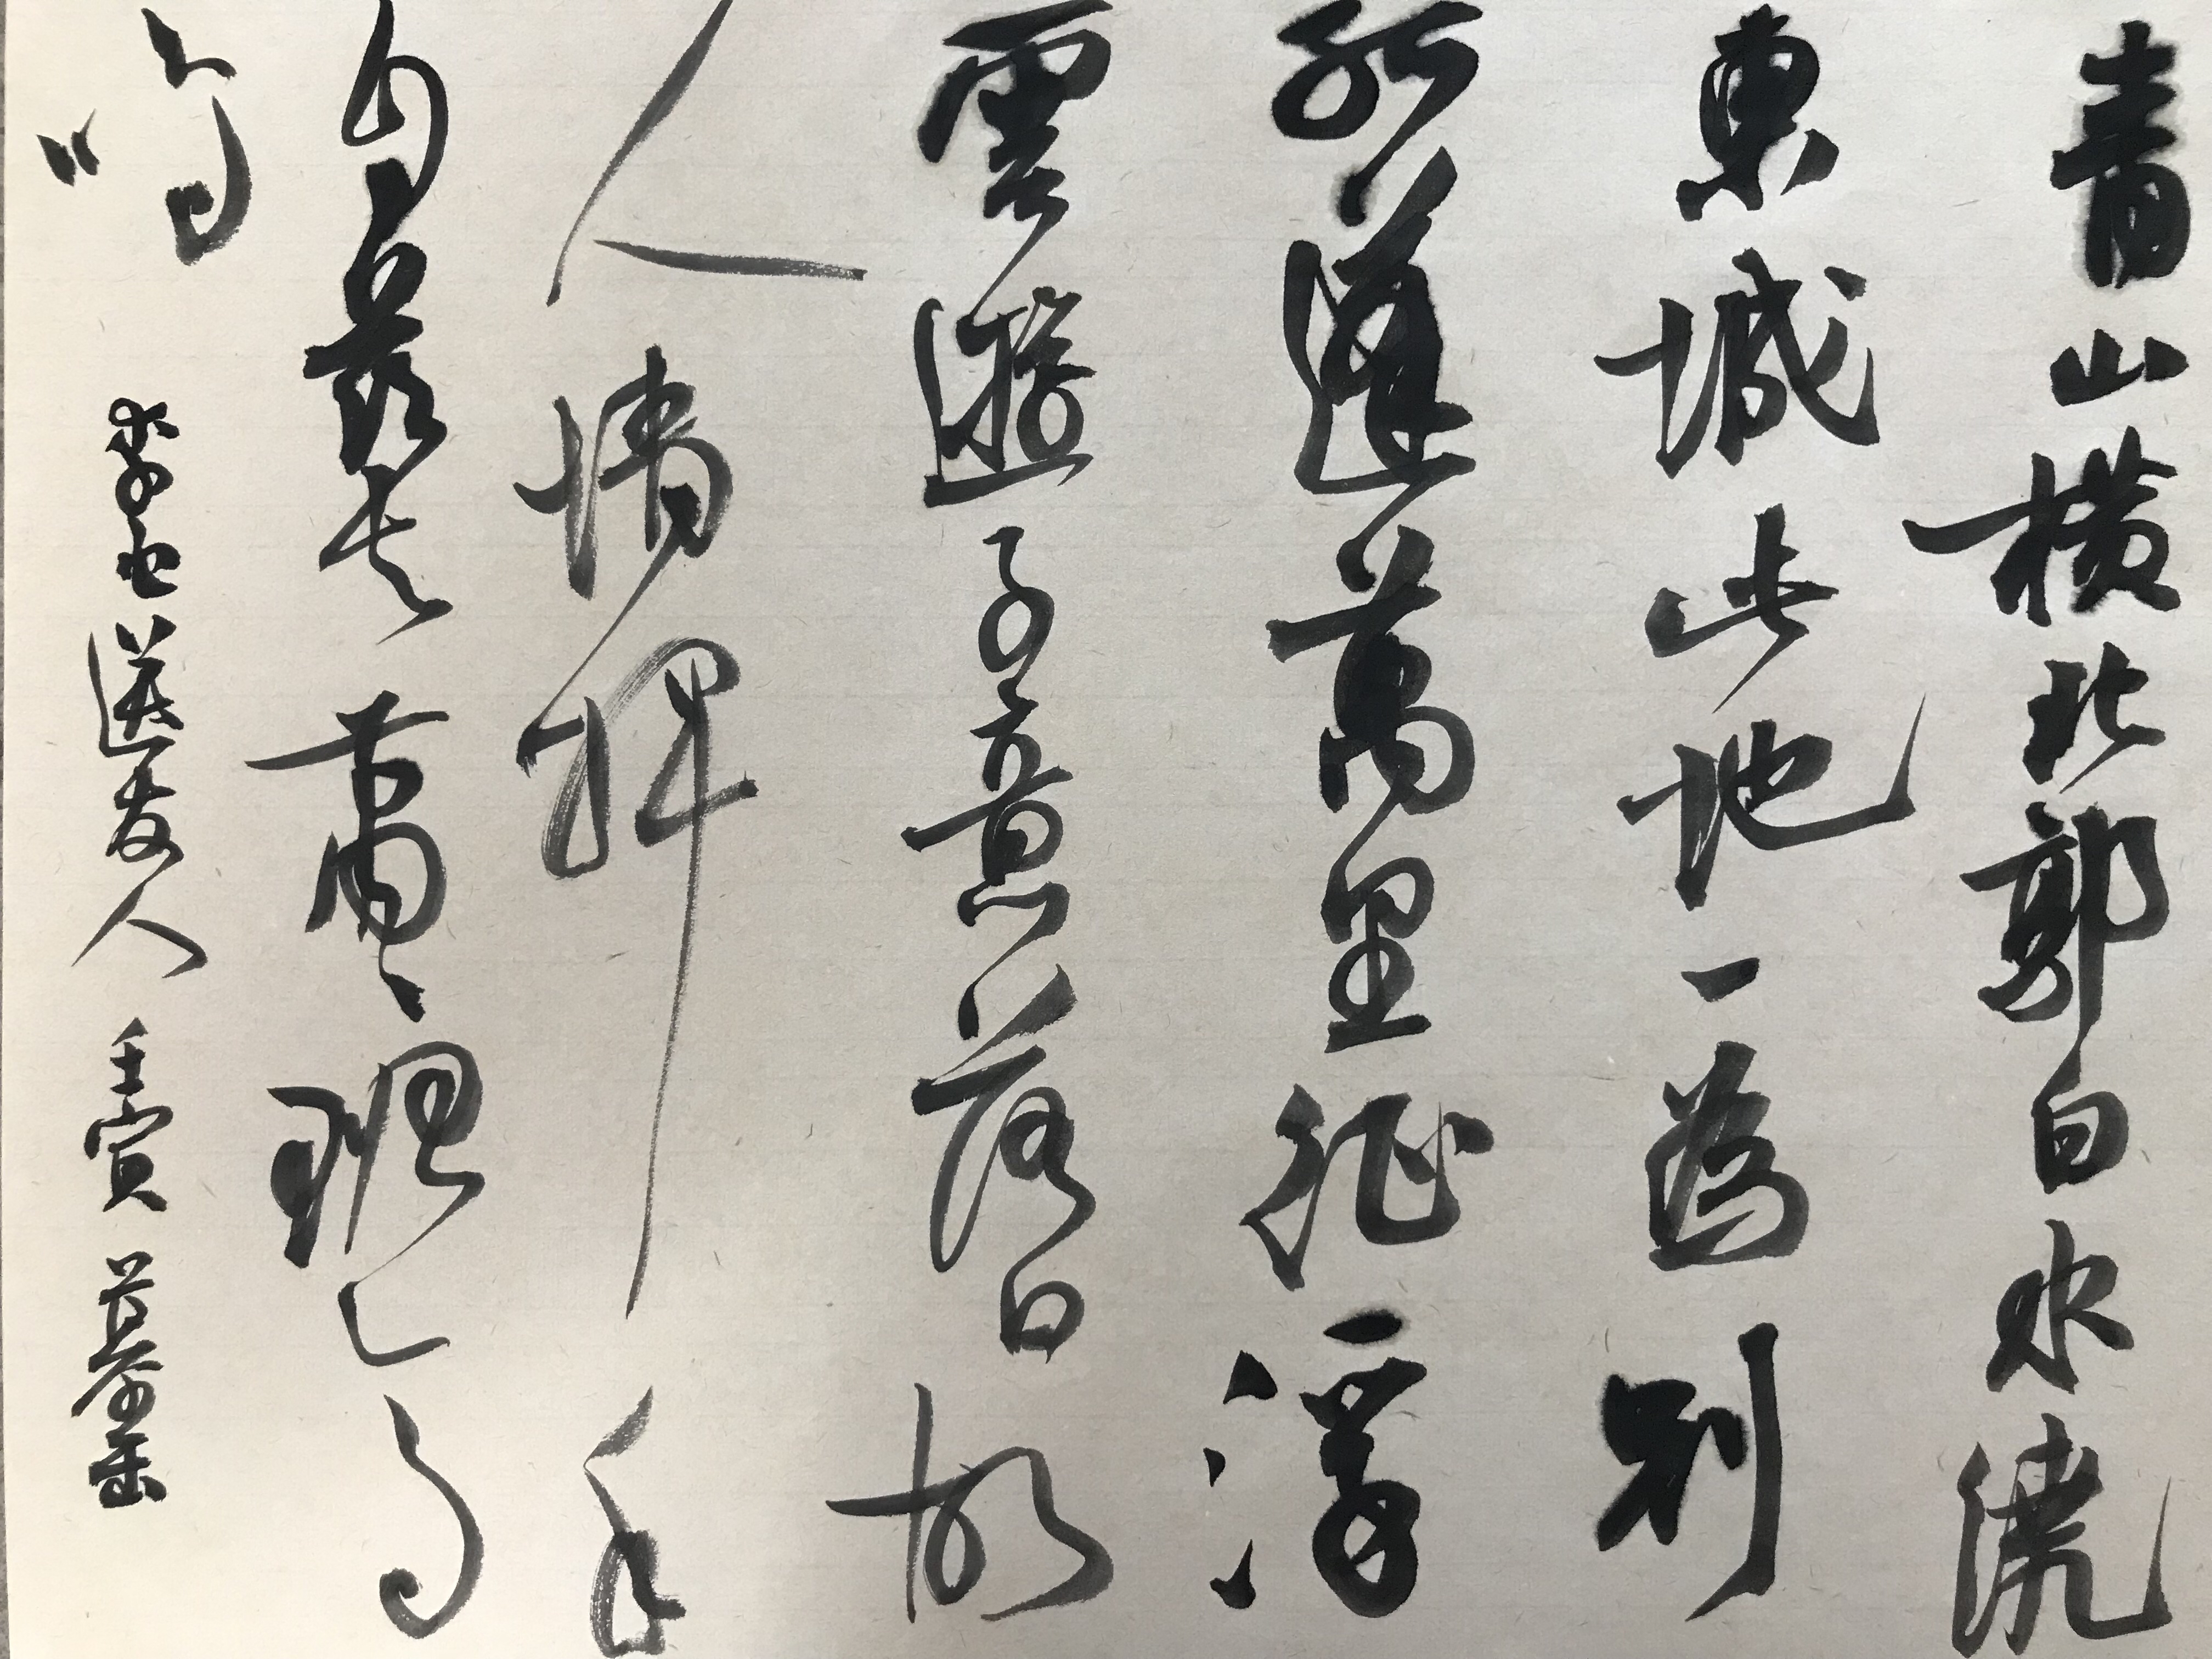 青山橫北郭白水繞
東城此地一為別
孤蓬萬里征浮
雲遊子意落日故
人情揮手
自茲去蕭々班馬
鳴
李白送友人 壬寅 慕缶